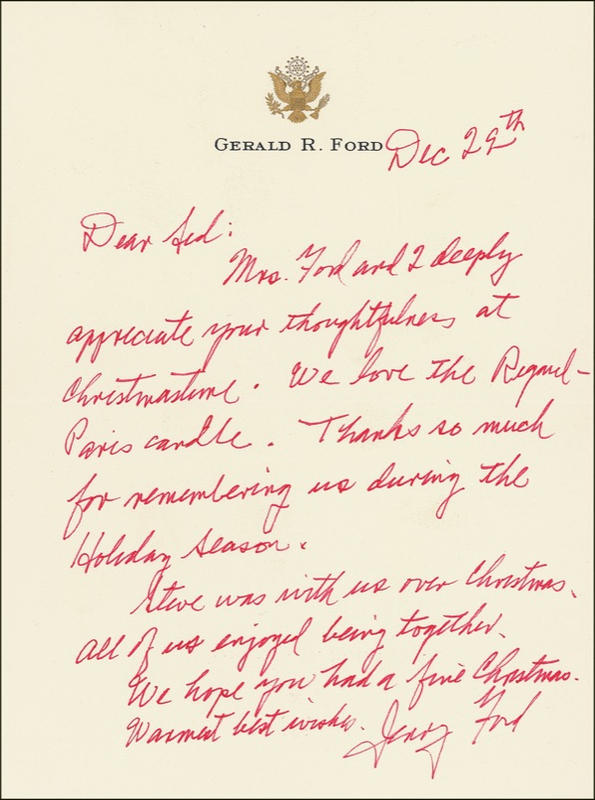 GERALD R. FORD
Dec 29th
Dear
Mrs. Ford and I deeply
appreciate your thoughtfulness at
Christmastime. We love the
Paris candle. Thanks so much
for remembering us during the
Holiday Season.
Steve was with us over Christmas.
All of us enjoyed being together.
We hope you had a fine Christmas.
Warmest best wishes.
Jerry Ford